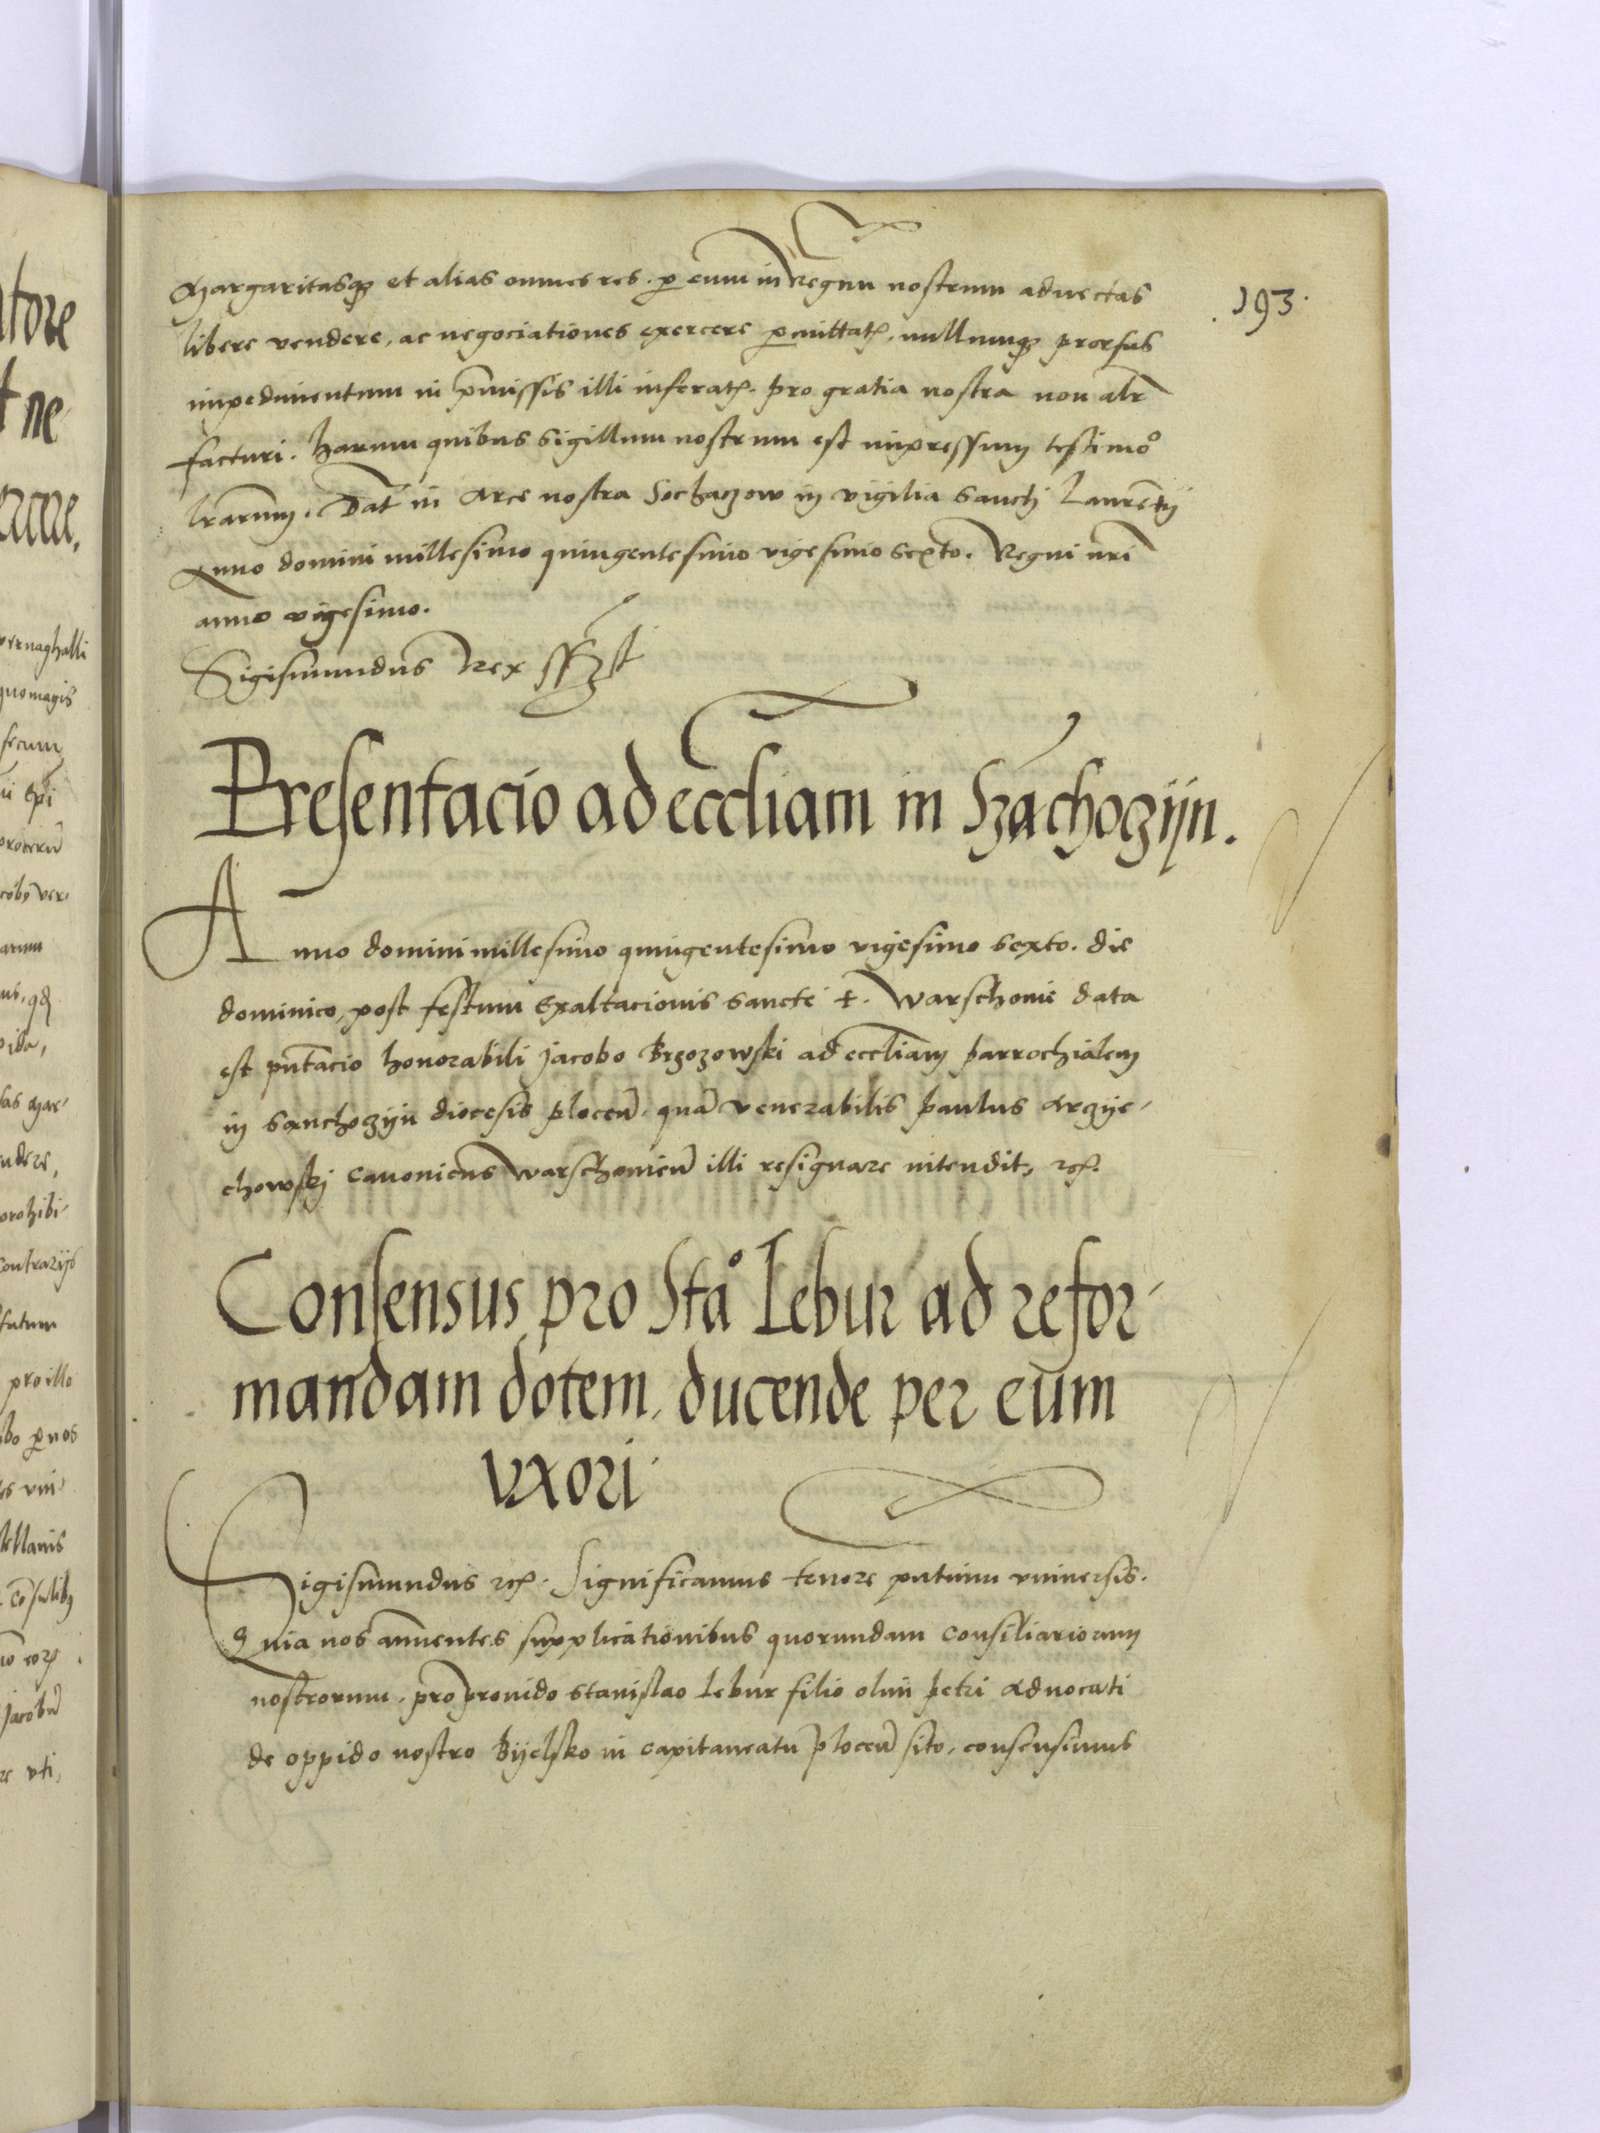 Margaritasq; et alias omnes res. p eum in Regnu nostrum aduectas
libere vendere, ac negociationes exercere pmittat, nullumq; prorsus
impedimentum in pmissis illi inferat. pro gratia nostra non alr
facturi. Harum quibus sigillum nostrum est impressum testimo
lrarum. Dat in Arce nostra Sochaczow in vigilia Sancti Laurentij
Anno domini millesimo quingentesimo vigesimo sexto. Regni nri
anno vigesimo.
Sigismundus Rex sszt
193.
Presentacio ad eccliam in Szachoczijn.
Anno domini millesimo quingentesimo vigesimo sexto. die
dominico, post festum Exaltacionis sancte †. Warschouie data
est pntacio honorabili Jacobo Brzozowski ad eccliam parrochialem
in Sanchoczijn diocesis plocen. qua venerabilis paulus Arczije-
chowski canonicus Warschouien illi resignare intendit, rc.
Consensus pro Sta Lebur ad refor-
mandam dotem, ducende per eum
vxori.
Sigismundus rc. Significamus tenore pntium vniuersis.
Quia nos annuentes supplicationibus quorundam consiliariorum
nostrorum, pro prouido Stanislao Lebur filio olim petri Aduocati
de oppido nostro Bijelsko in capitaneatu plocen sito, consensimus